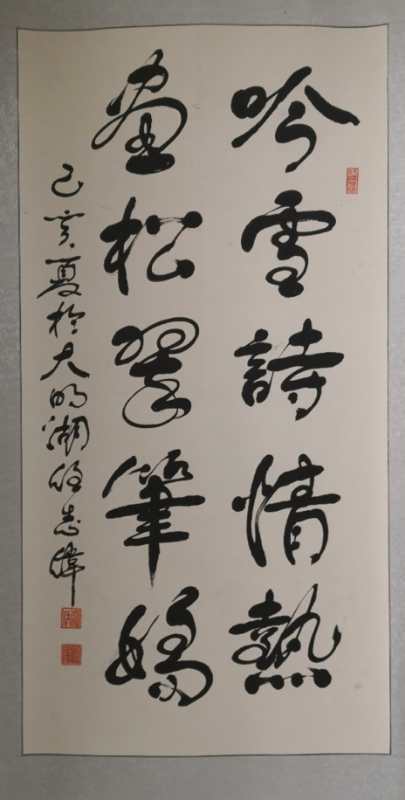 吟雪詩情熱
畫松翠筆嬌
己亥夏於大明湖任志偉